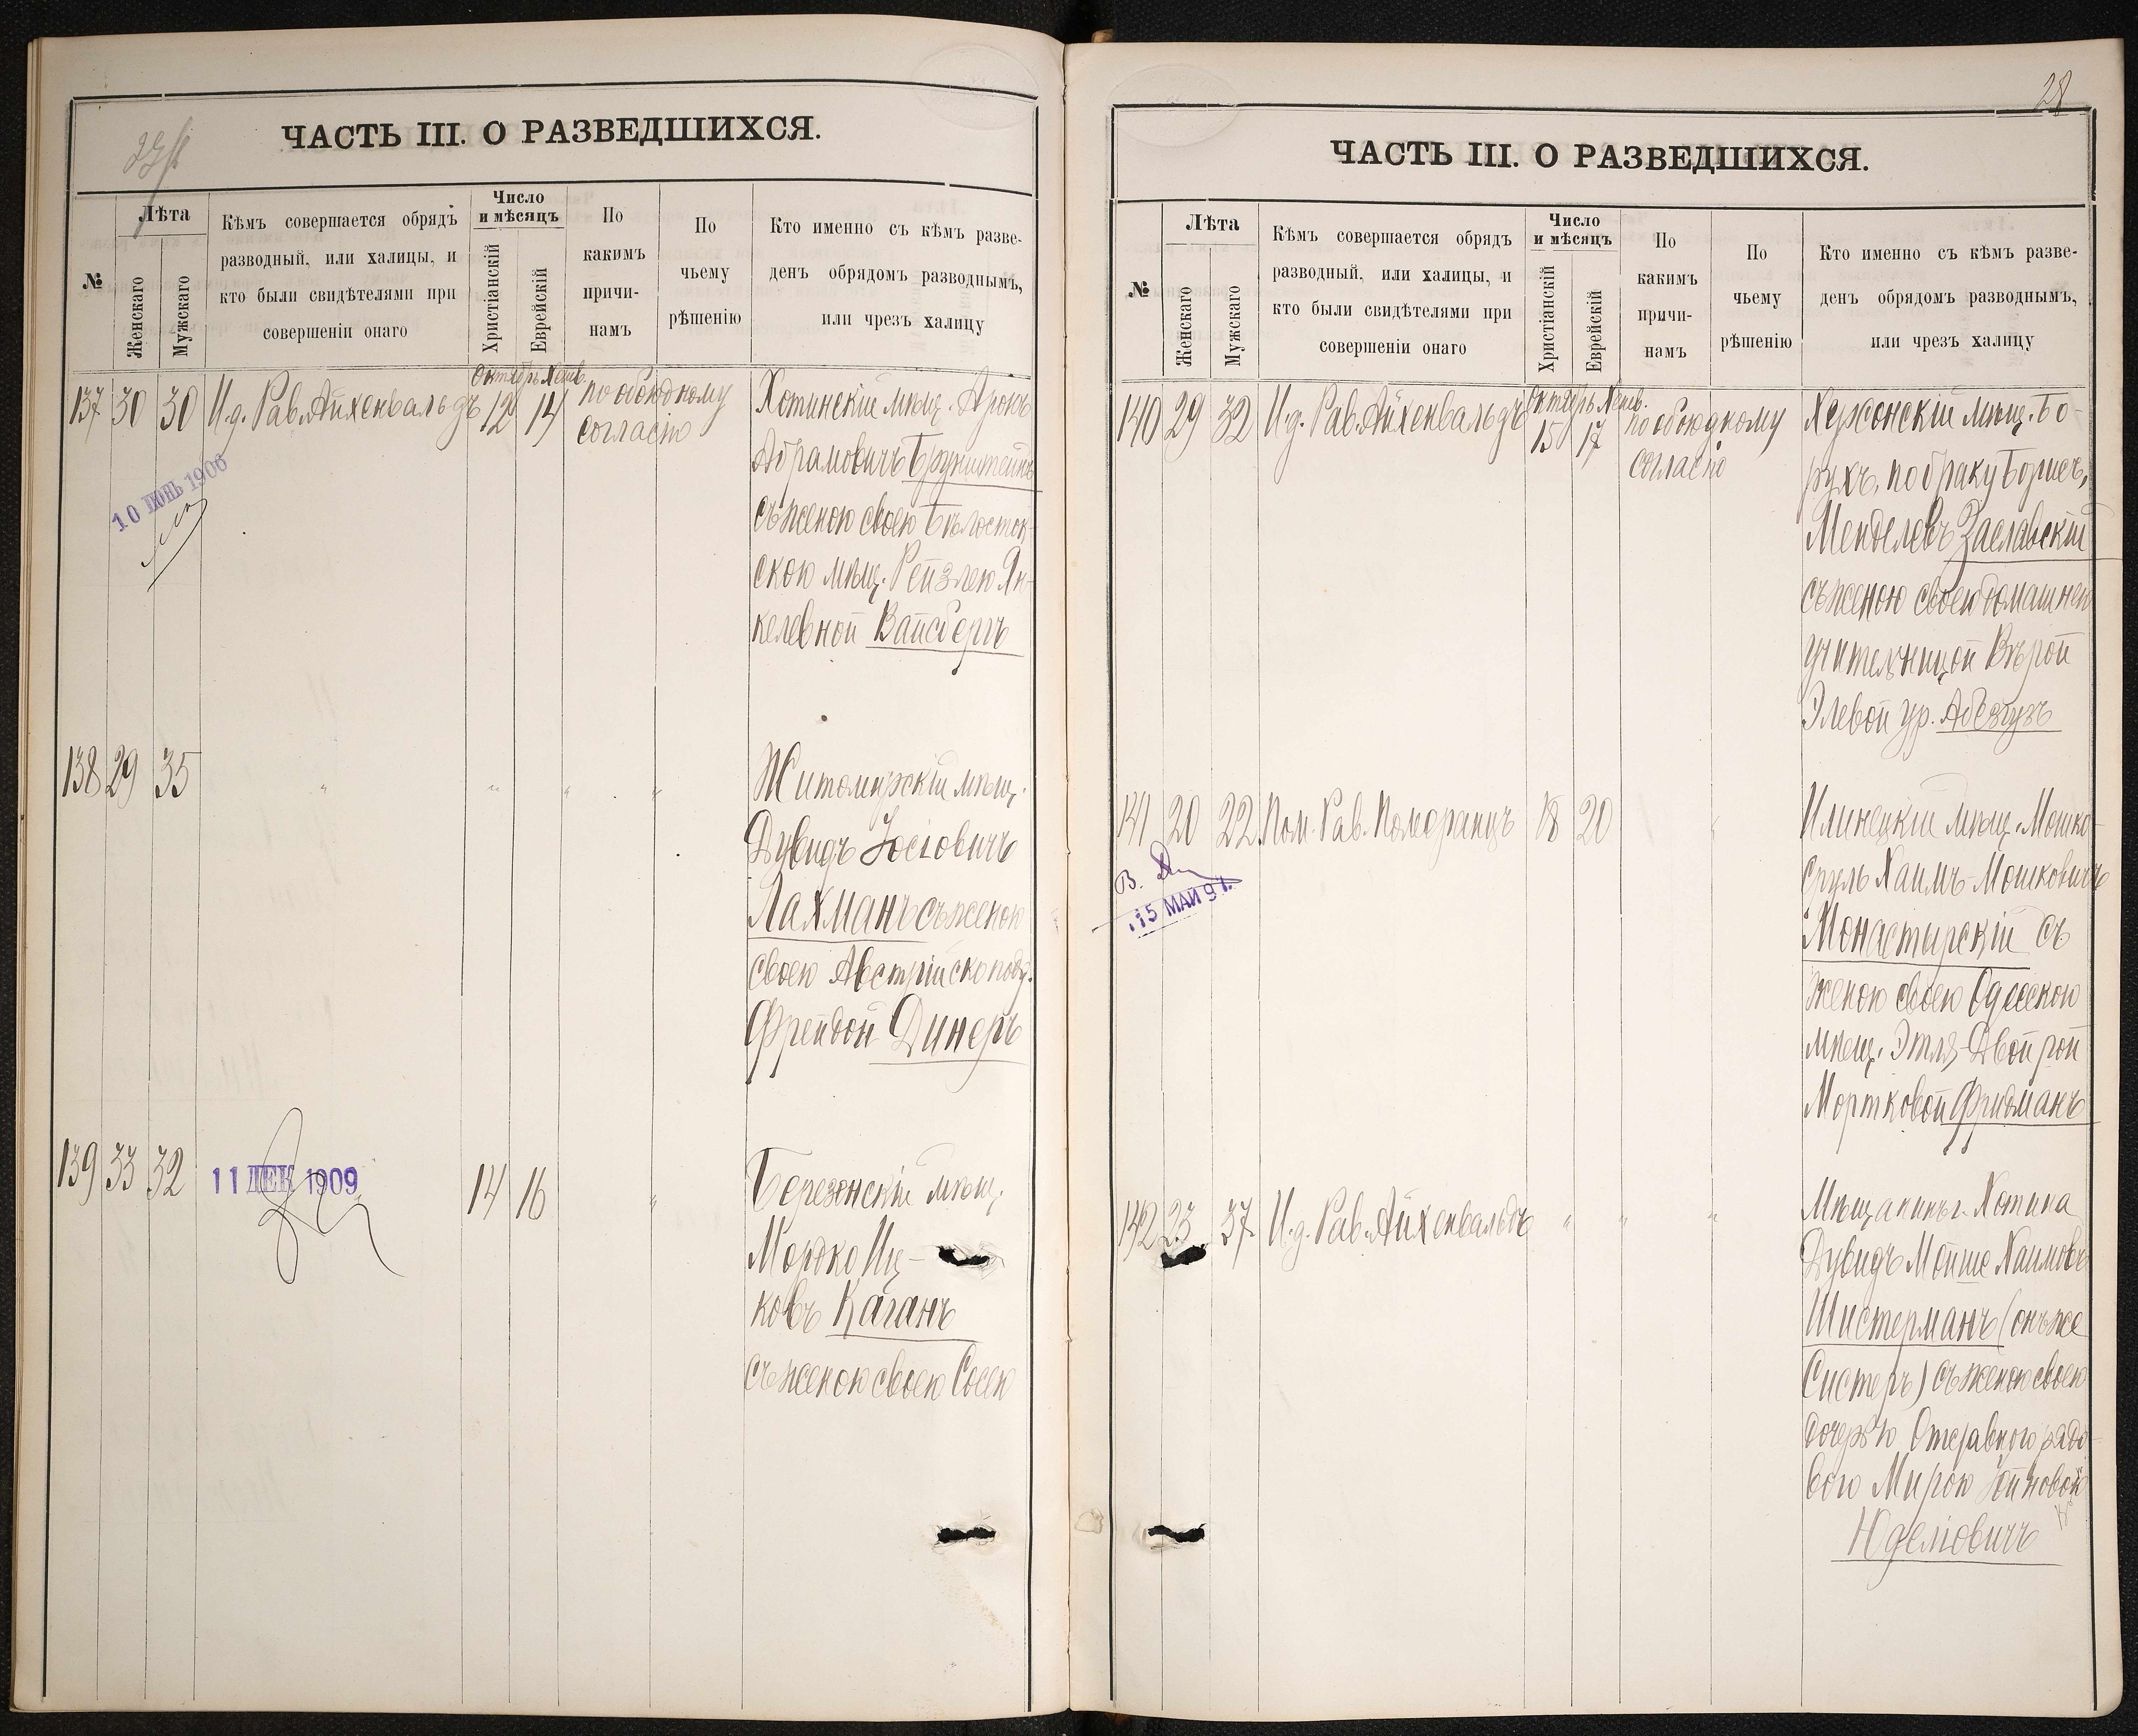 ЧАСТЬ III. О РАЗВЕДШИХСЯ.
№
Лѣта
Женскаго
Мужскаго
Кѣмъ совершается обрядъ
разводный, или халицы, и
кто были свидѣтелями при
совершеніи онаго
Число
и мѣсяцъ
Христіанскій
Еврейскій
По
какимъ
причи-
намъ
По
чьему
рѣшенію
Кто именно съ кѣмъ разве-
денъ обрядомъ разводнымъ,
или чрезъ халицу
Октябрь Хешв.
137 30 30 И.д. Рав. Айхенвальдъ 12 14 по обоюдному
согласію
Хотинскій мѣщ. Аронъ
Абрамовичъ Бронштейнъ
съ женою своею Бѣлосток-
скою мѣщ. Рейзлею Ян-
келевной Вайсбергъ
10 ІЮНЬ 1906
138 29 35 " " " "
Житомирскій мѣщ.
Дувидъ Іосіовичъ
Лахманъ съ женою
своею Австрійско под.
Фрейдой Динеръ
139 33 32 14 16 "
11 ДЕК 1909
Березенскій мѣщ.
Мордко Иц-
ковъ Каганъ
съ женою своею Сосею
28
ЧАСТЬ III. О РАЗВЕДШИХСЯ.
№
Лѣта
Женскаго
Мужскаго
Кѣмъ совершается обрядъ
разводный, или халицы, и
кто были свидѣтелями при
совершеніи онаго
Число
и мѣсяцъ
Христіанскій
Еврейскій
По
какимъ
причи-
намъ
По
чьему
рѣшенію
Кто именно съ кѣмъ разве-
денъ обрядомъ разводнымъ,
или чрезъ халицу
Октябрь Хешв.
140 29 32 И.д. Рав. Айхенвальдъ 15 17 по обоюдному
согласію
Херсонскій мѣщ. Бо-
рухъ, по браку Борисъ,
Менделевъ Заславскій
съ женою своею домашней
учительницой Вѣрой
Элевой ур. Абезгузъ
141 20 22 Пом. Рав. Померанцъ 18 20 "
15 МАЙ 91
Илинецкій мѣщ. Мошко-
Сруль Хаимъ-Мошковичъ
Монастырскій съ
женою своею Одесскою
мѣщ. Этля-Двойрой
Мортковой Фридманъ
142 23 37 И.д. Рав. Айхенвальдъ " " "
Мѣщанинъ г. Хотина
Дувидъ Мойше Хаимовъ
Шистерманъ (онъ же
Систеръ) съ женою своею
дочерью Отставного рядо-
вого Мирою Йойновой
Юделіовичъ